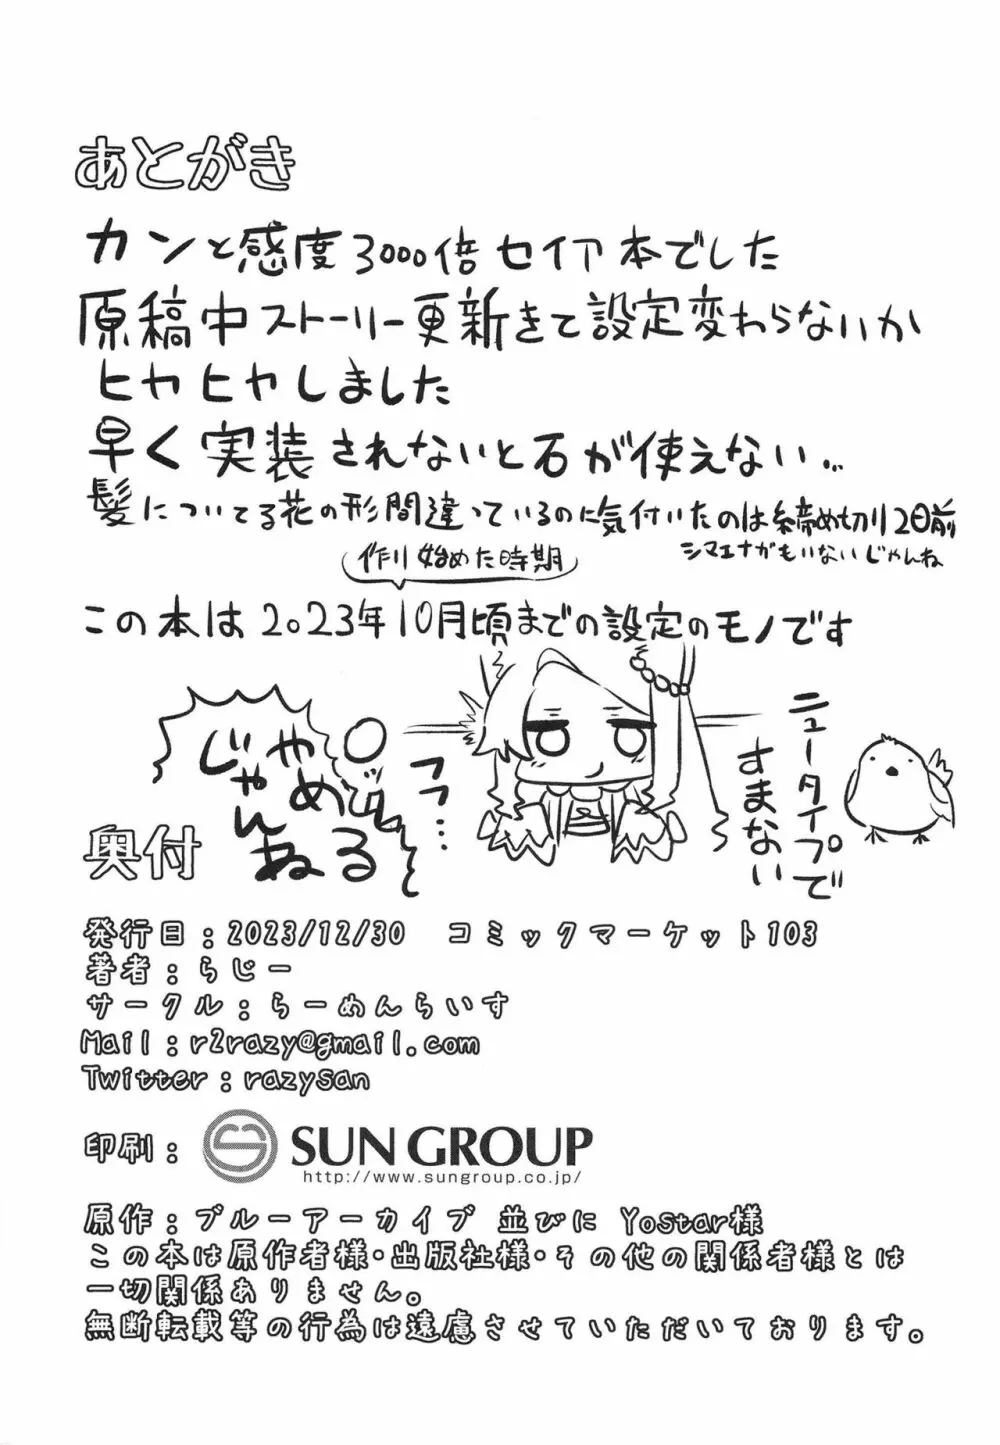 あとがき
カンと感度3000倍セイア本でした
原稿中ストーリー更新きて設定変わらないか
ヒヤヒヤしました
早く実装されないと石が使えない...
髪についてる花の形間違っているのに気付いたのは締め切り2日前
シマエナガもいないじゃんね
作り始めた時期
この本は2023年10月頃までの設定のモノです
ニュータイプで
すまない
フフ…
やめる
じゃんね
奥付
発行日：2023/12/30 コミックマーケット103
著者：らじー
サークル：らーめんらいす
Mail：r2razy@gmail.com
Twitter：razysan
印刷：SUN GROUP
http://www.sungroup.co.jp/
原作：ブルーアーカイブ 並びに Yostar様
この本は原作者様・出版社様・その他の関係者様とは
一切関係ありません。
無断転載等の行為は遠慮させていただいております。